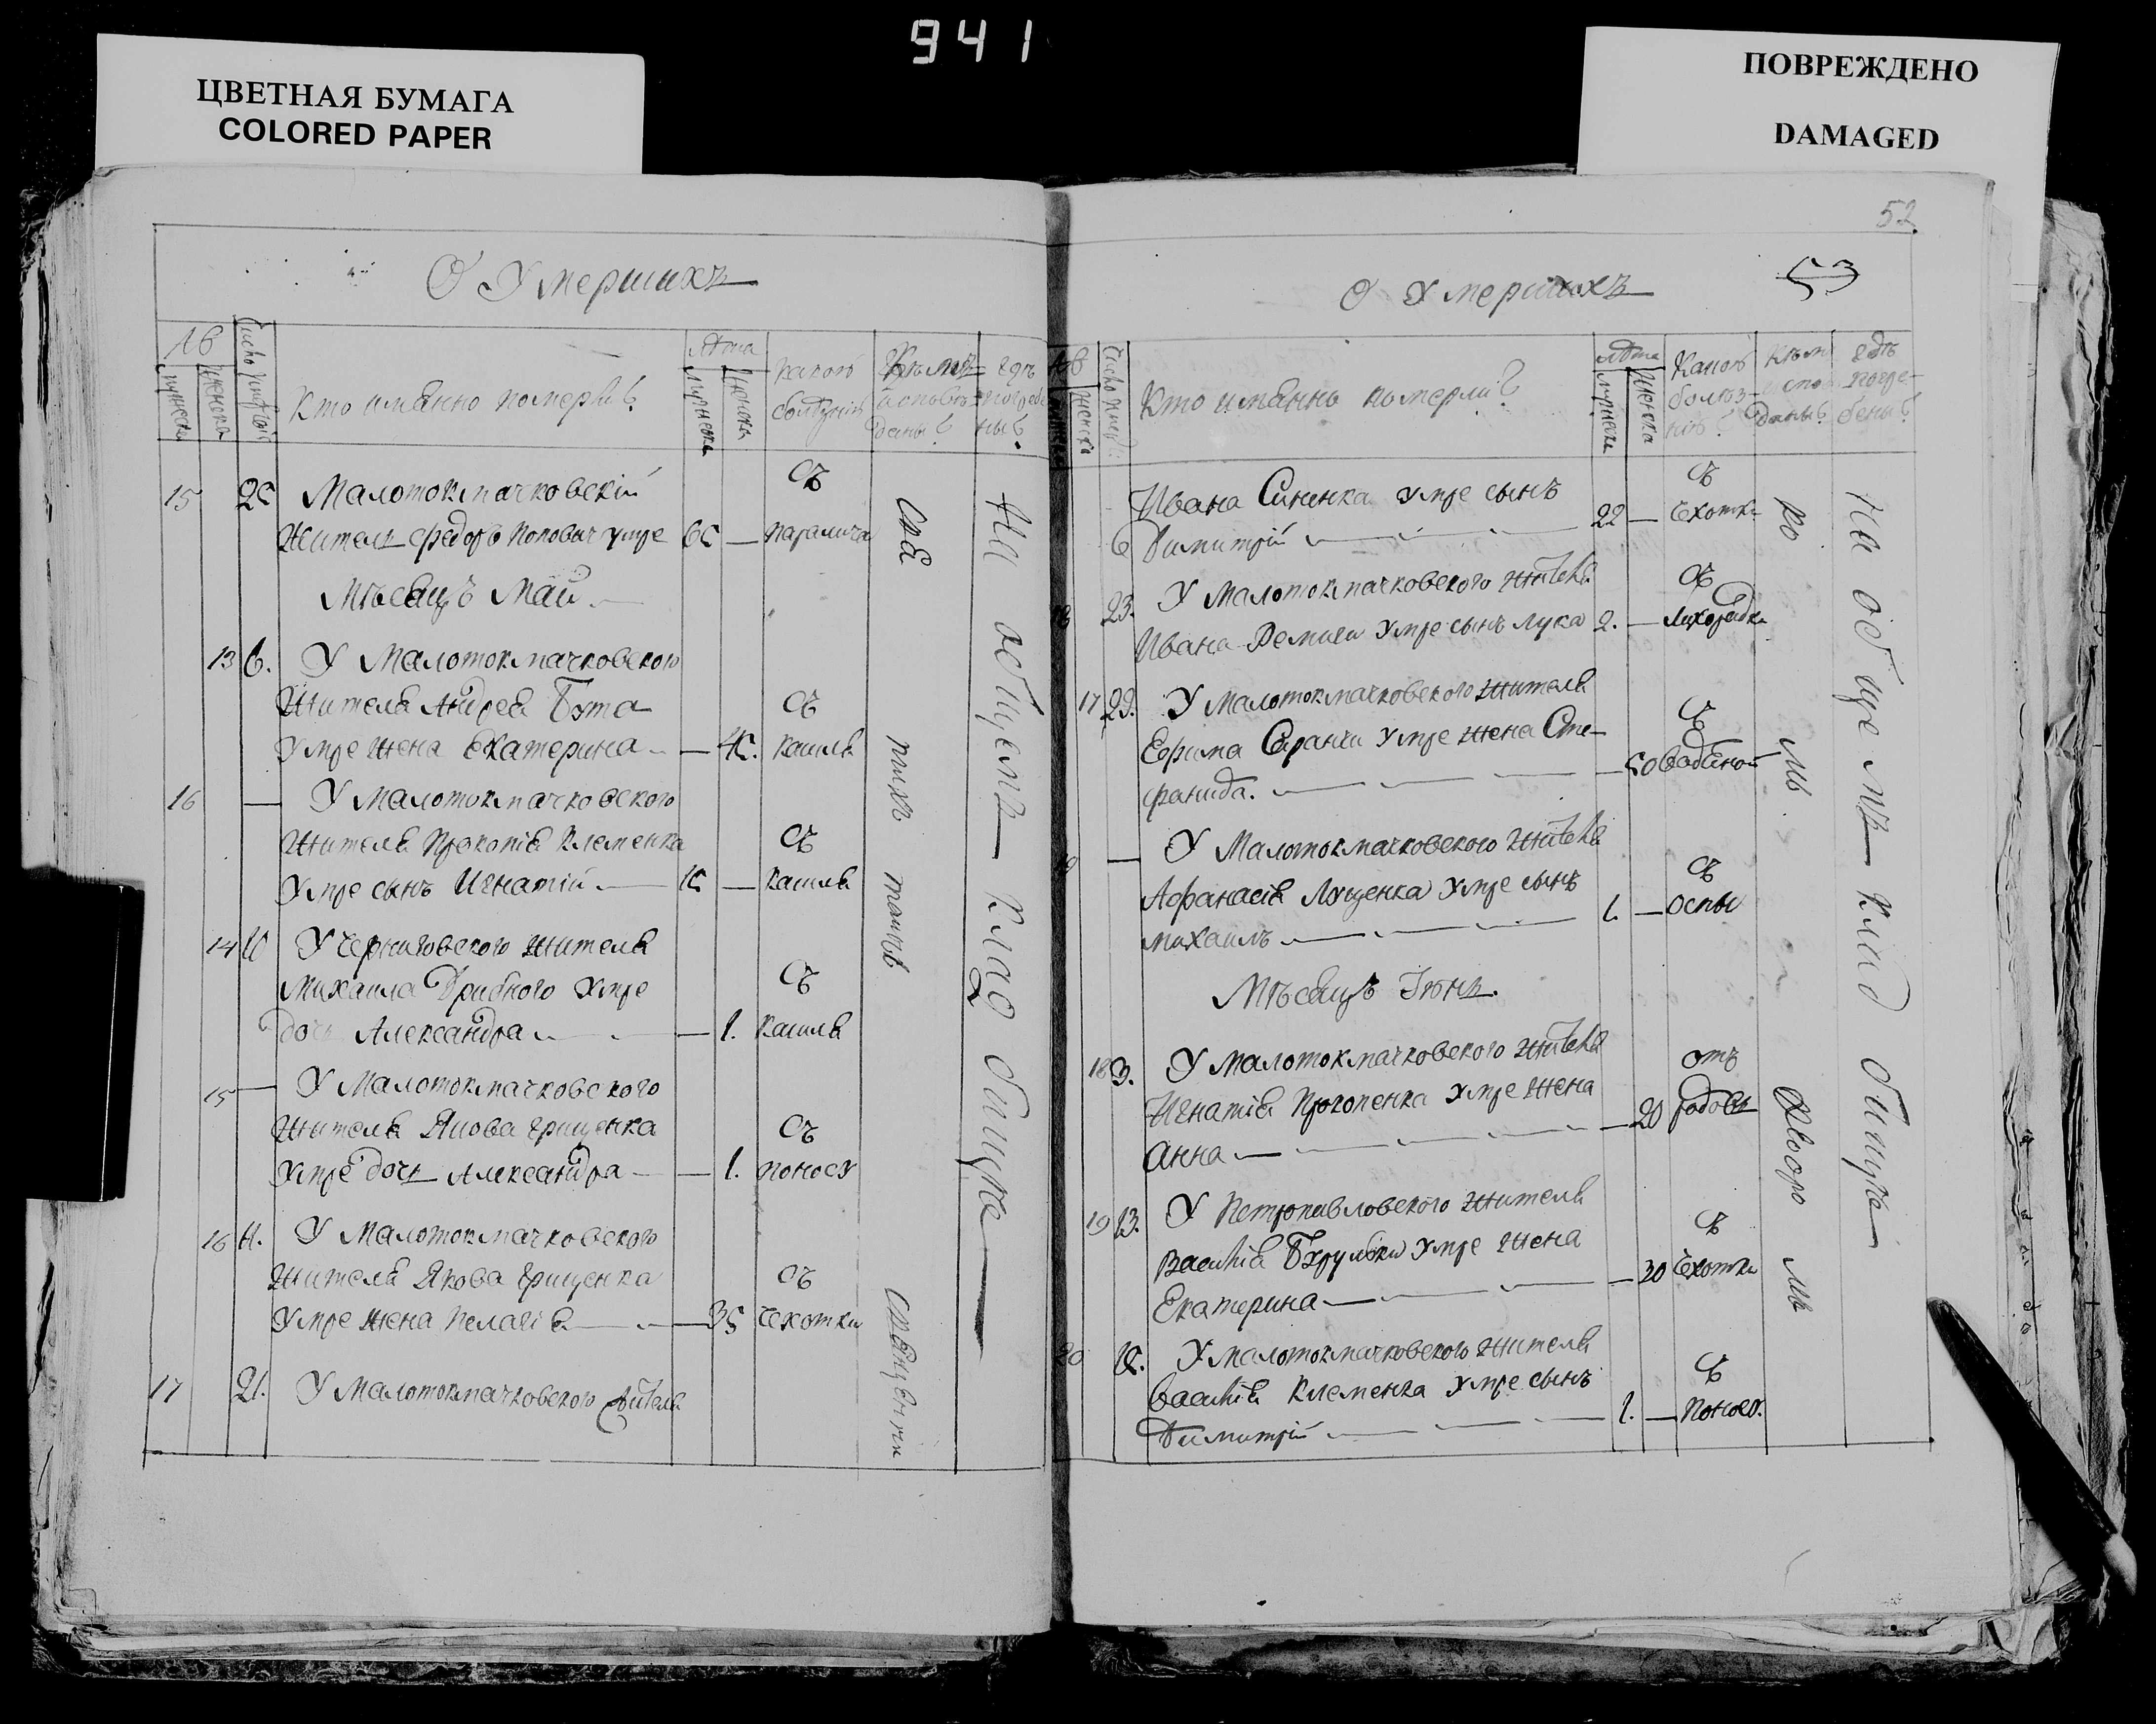 941
ЦВЕТНАЯ БУМАГА
COLORED PAPER
ПОВРЕЖДЕНО
DAMAGED
О Умершихъ
№
мужеска
женска
Число
Кто имянно померли?
лѣта
мужеска
женска
какою
болѣзнію
Кѣмъ
исповѣ=
даны?
гдѣ
погребе
ны?
15 25 Малотокмачковскій
Житель Федоръ Поповичъ умре 65 — паралича
съ
Мѣсяцъ Май
13 6. У Малотокмачковского
Жителя Андрея Бута
съ
Умре жена Екатерина — 45. кашля
16 — У Малотокмачковского
Жителя Прокопія Клеменка
съ
Умре сынъ Игнатій — 15 — кашля
14 10 У Черниговского жителя
Михаила Дрибного умре
съ
дочь Александра — 1. кашля
15 — У Малотокмачковского
Жителя Якова Грищенка
съ
Умре дочь Александра — 1. поносу
16 11. У Малотокмачковского
Жителя Якова Грищенка
съ
Умре жена Пелагія — 35 чехотки
17 21. У Малотокмачковского жителя
священникъ
На общемъ кладбищѣ
52.
53
О Умершихъ
№
женска
Число
Кто имянно померли?
лѣта
мужеска
женска
Какою
болѣз-
нію?
Кѣмъ
испо
даны?
гдѣ
погре-
бены?
Ивана Синенка умре сынъ
съ
Димитрій — 22 — чехотки
18 23. У Малотокмачковского жителя
съ
Ивана Ремиги умре сынъ Лука 2. — Лихорадки
17 29. У Малотокмачковского жителя
Ефима Саранчи умре жена Сте-
съ
фанида. — 50 водяной
— У Малотокмачковского жителя
Афанасія Луценка умре сынъ
съ
михаилъ — 1. — оспы
Мѣсяцъ Іюнь.
18 3. У Малотокмачковского жителя
отъ
Игнатія Прокопенка умре жена
Анна — 20 родовъ
19 13. У Петропавловского жителя
съ
Василія умре жена
Екатерина — 30 чехотки
20 15. У Малотокмачковского жителя
съ
Василія Клеменка умре сынъ
Димитрій — 1. — поносу.
На общемъ кладбищѣ